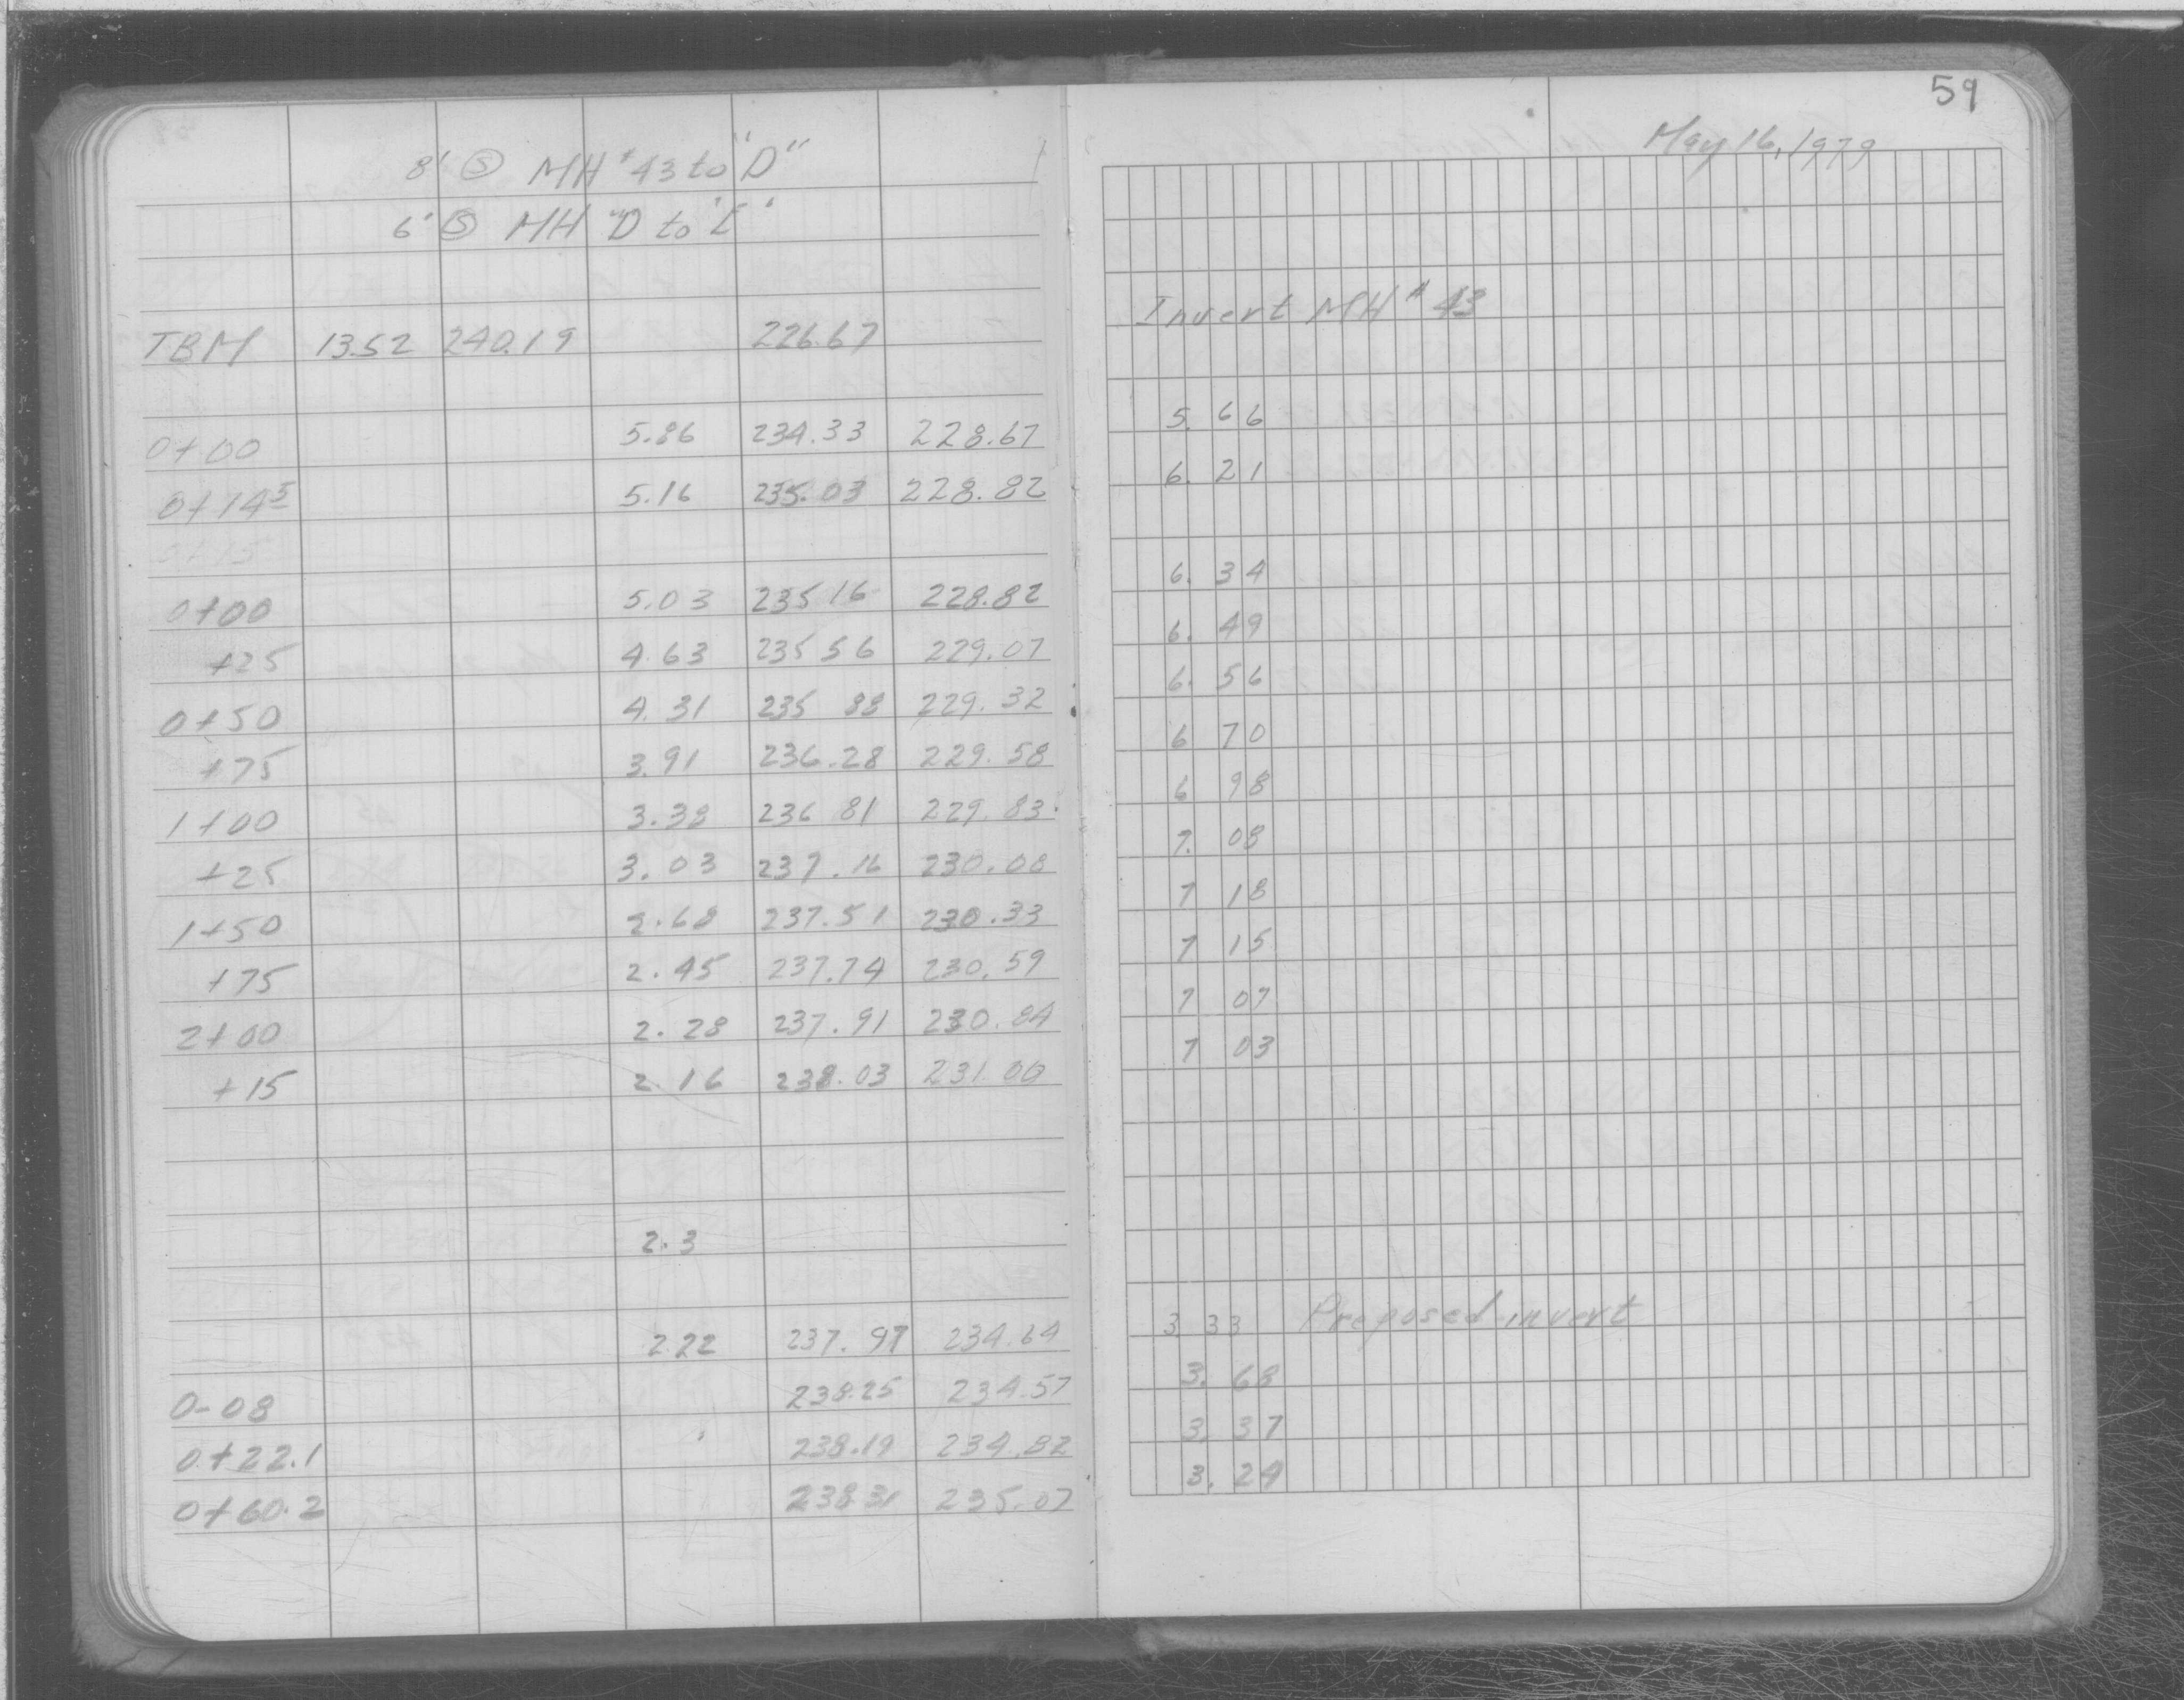 59
May 16, 1979
8' Ⓢ MH #43 to "D"
6' Ⓢ MH "D" to "E"
Invert MH # 43
TBM 13.52 240.19 226.67
0+00 5.86 234.33 228.67 5.66
0+14⁵ 5.16 235.03 228.82 6.21
0+15
0+00 5.03 235 16 228.82 6.34
+25 4.63 235 56 229.07 6.49
0+50 4.31 235 88 229.32 6.56
+75 3.91 236.28 229.58 6 70
1+00 3.38 236 81 229.83 6 98
+25 3.03 237.16 230.08 7.08
1+50 2.68 237.51 230.33 7 18
+75 2.45 237.74 230.59 7 15
2+00 2.28 237.91 230.84 7 07
+15 2.16 238.03 231.00 7 03
2.3
2.22 237.97 234.64 3.33 Proposed invert
0-08 238.25 234.57 3.68
0+22.1 238.19 234.82 3.37
0+60.2 238 31 235.07 3.24